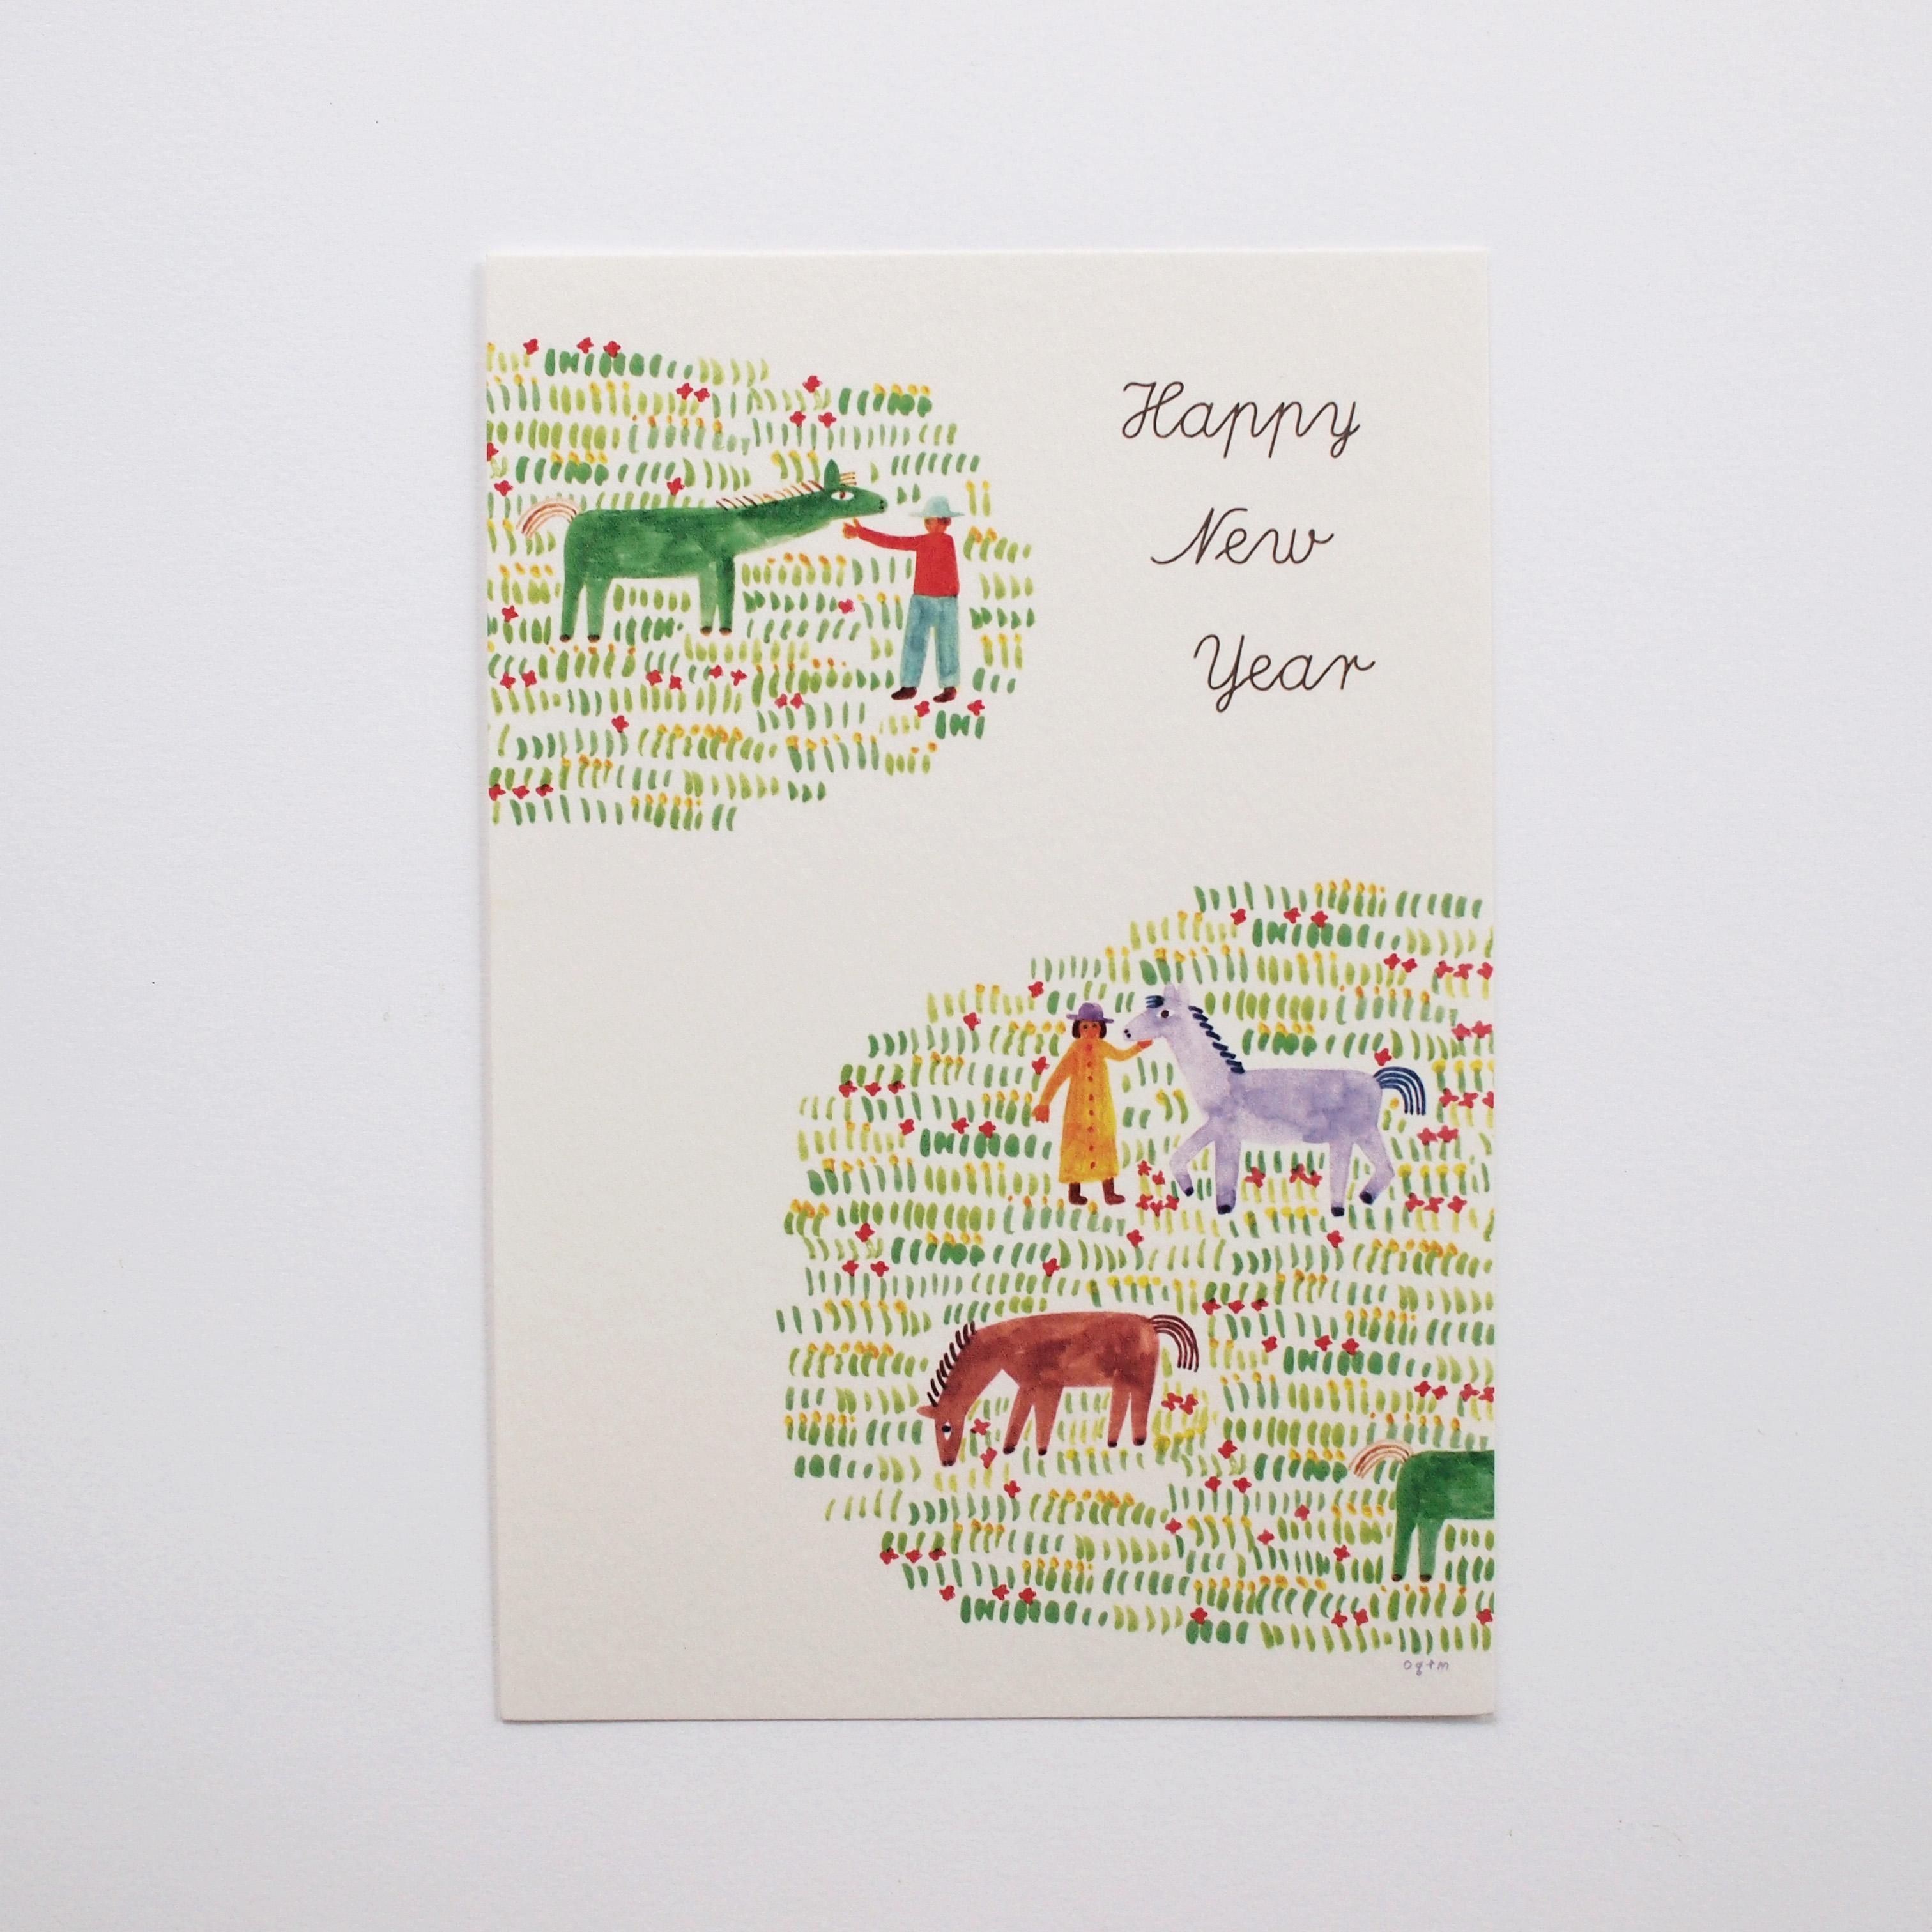 Happy
New
Year
ogtm